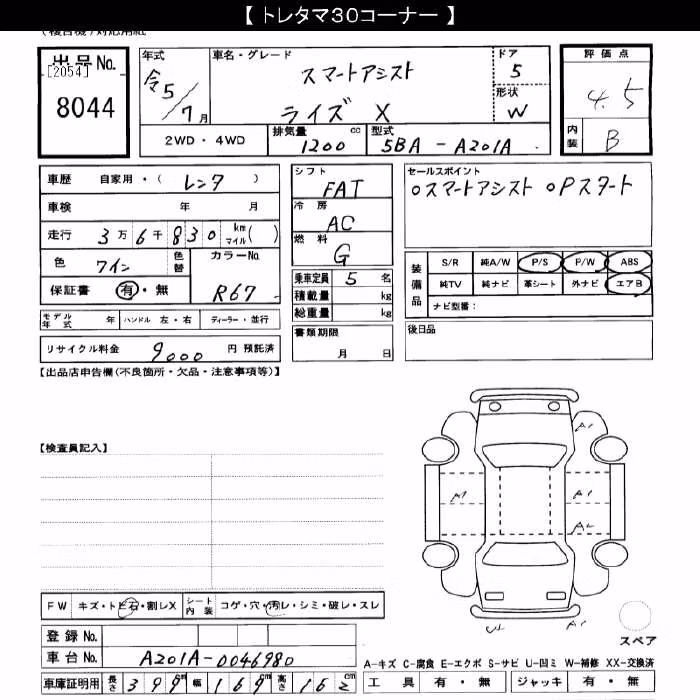 【 トレタマ30コーナー 】
(複合機)対応用紙
出品No.
[2054]
8044
年式
令5/7月
車名・グレード
スマートアシスト
ライズ X
ドア
5
形状
W
評価点
4.5
内装
B
2WD・4WD
排気量 1200 cc
型式 5BA - A201A
車歴 自家用・( レンタ )
車検 年 月
走行 3万6千830 km マイル( )
色 ワイン 色替 カラーNo. R67
保証書 有・無
モデル年式 年 ハンドル 左・右 ディーラー・並行
リサイクル料金 9000 円 預託済
シフト
FAT
冷房
AC
燃料
G
乗車定員 5 名
積載量 kg
総重量 kg
書類期限
月 日
セールスポイント
○スマートアシスト ○Pスタート
装備品
S/R 純A/W P/S P/W ABS
純TV 純ナビ 革シート 外ナビ エアB
ナビ型番:
後日品
【出品店申告欄(不良箇所・欠品・注意事項等)】
【検査員記入】
A1
A1
A1
A2
U2
A1
スペア
FW キズ・トビ石・割レX シート内装 コゲ・穴・汚レ・シミ・破レ・スレ
登録No.
車台No. A201A-0046980
車庫証明用 長さ 399cm 幅 169cm 高さ 162
A-キズ C-腐食 E-エクボ S-サビ U-凹ミ W-補修 XX-交換済
工具 有・無 ジャッキ 有・無